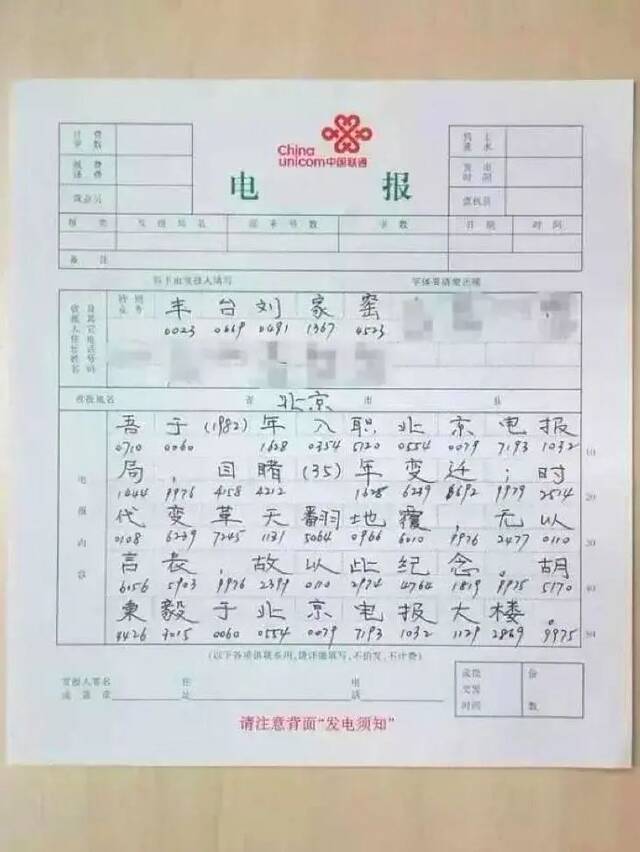 China
unicom中国联通
电 报
计费字数
报费译费
营业员
发出时间
值机员
报类 发报局名 原来号数 字数 日期 时间
备注
以下由发报人填写 字体要清楚正确
收报人住址姓名
及其它电话号码
丰台刘家窑
0023 0669 0491 1367 4523
收报地名 省 北京 市 县
吾于(1982)年入职北京电报
0710 0060 1628 0354 5120 0554 0079 7193 1032 10
局，目睹(35)年变迁；时
1444 9976 4158 4212 1628 6239 6692 9979 2514 20
电报内容
代变革天翻地覆，无以
0108 6239 7245 1131 5064 0966 6010 9976 2477 0110 30
言表，故以此纪念。胡
6056 5903 9976 2399 0110 2974 4764 1819 9975 5170 40
东毅于北京电报大楼。
4426 3015 0060 0554 0079 7193 1032 1129 2869 9975 50
(以下各项供联系用,请详细填写,不拍发,不计费)
发报人签名或盖章 住址 电话
成投交妥时间 份数
请注意背面“发电须知”